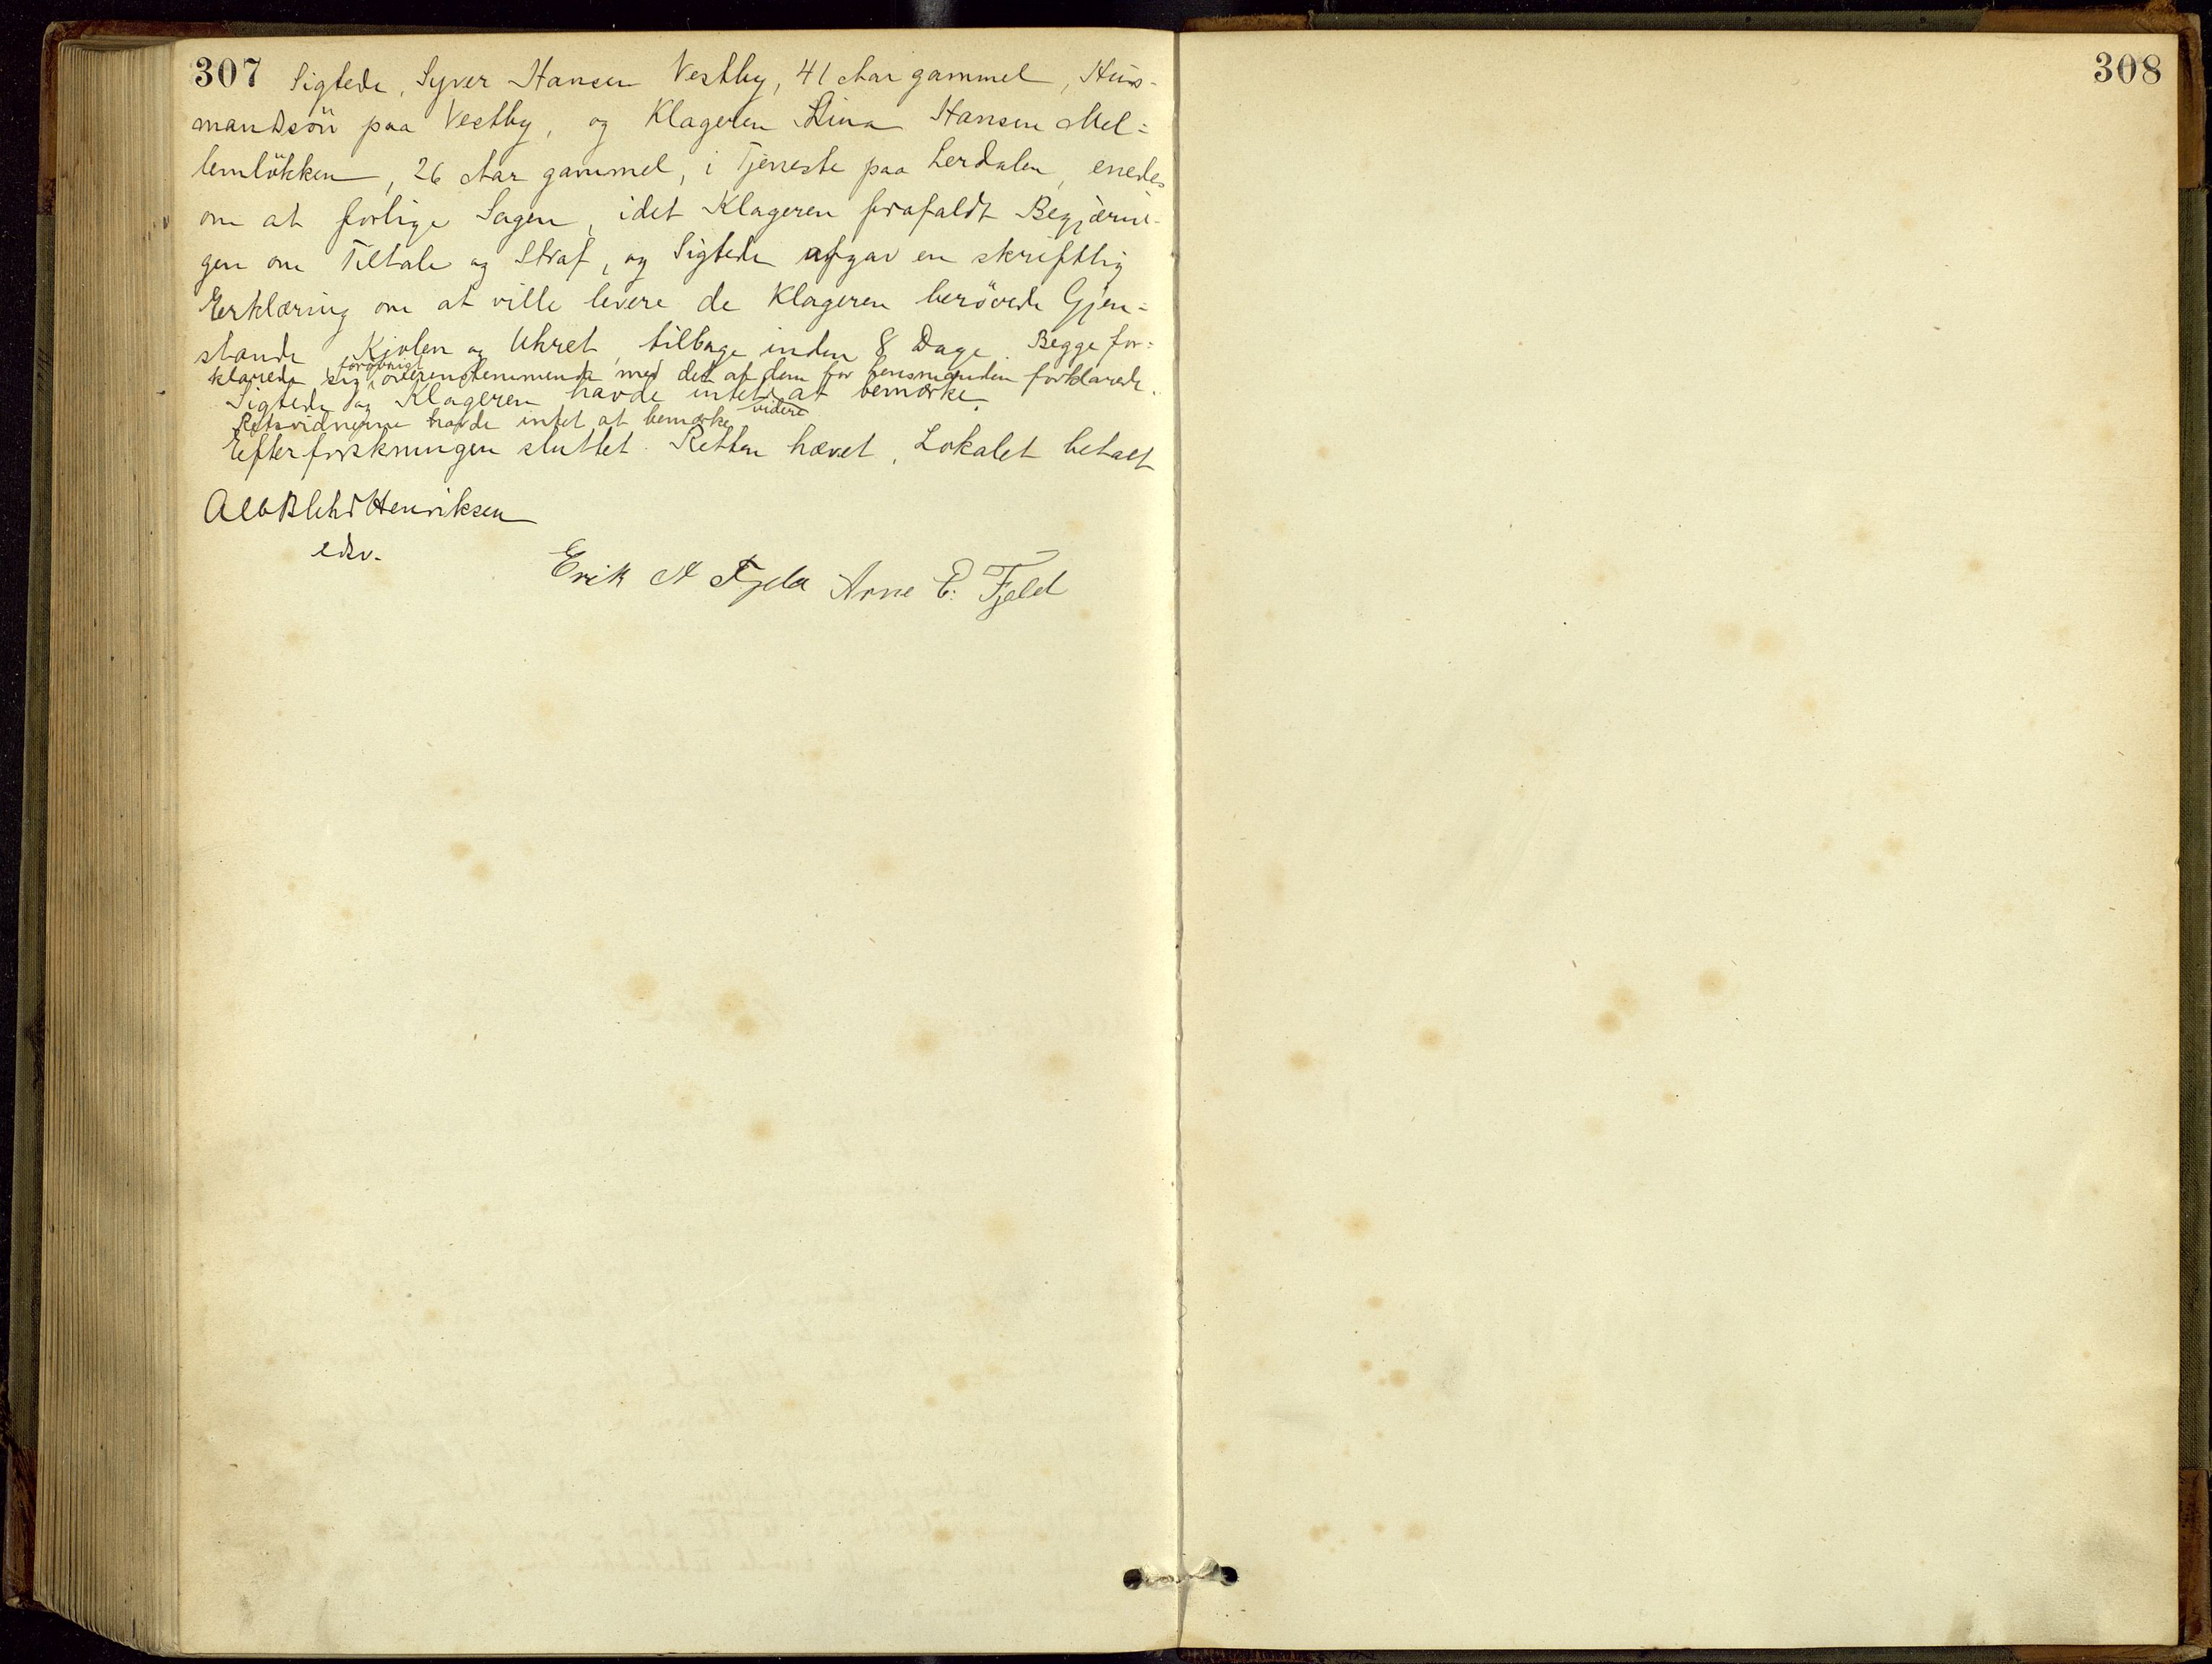 307 Sigtede, Syver Hansen Vestby, 41 Aar gammel, Hus-
mandsön paa Vestby, og Klageren Lina Hansen Mel=
lemlökken, 26 Aar gammel, i Tjeneste paa Lerdalen, enedes
om at forlige Sagen, idet Klageren frafaldt Begjærin-
gen om Tiltale og Straf, og Sigtede afgav en skriftlig
Erklæring om at ville levere de Klageren berövede Gjen=
stande, Kjolen og Uhret, tilbage inden 8 Dage. Begge for=
klarede sig forövrigt overensstemmende med det af dem for Lensmanden forklarede.
Sigtede og Klageren havde intet videre at bemærke.
Retsvidnerne havde intet at bemærke
Efterforskningen sluttet. Retten hævet, Lokalet betalt
Alb Henriksen
edsv.
Erik A Fjeld Arne E. Fjeld
308